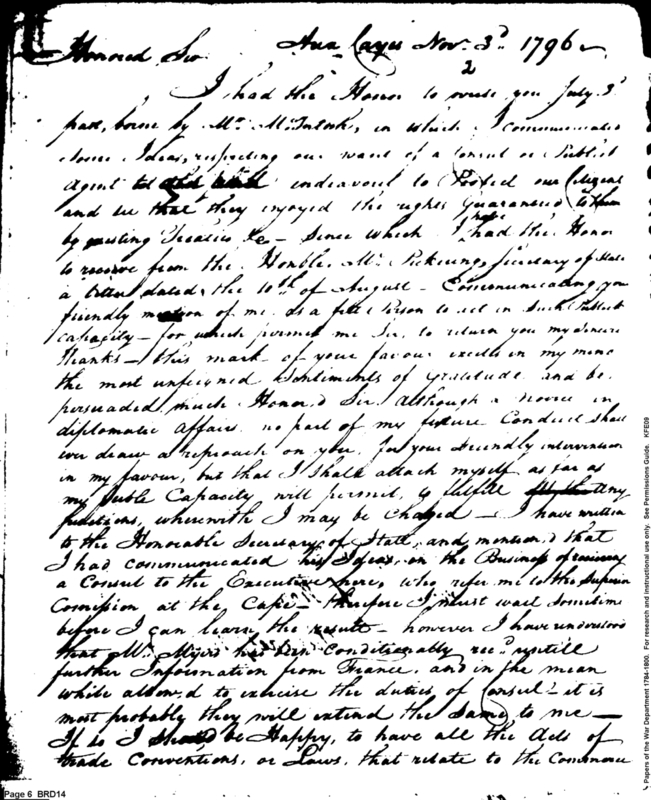 Aux Cayes Nov. 3d. 1796
Honored Sir
2
I had the Honor to write you July 3d
past, borne by Mr. McIntosh, in which I communicated
some Ideas, respecting our want of a Consul or Publick
Agent to endeavour to Protect our Citizens
and see that they enjoyed the rights guaranteed to them
by existing Treaties &c - Since which I have had the Honor
to receive from the Honble. Mr. Pickering, Secretary of State
a letter dated the 10th of August - Communicating your
friendly mention of me as a fitt Person to act in such Publick
capacity - for which permit me Sir, to return you my sincere
thanks - this mark of your favour excites in my mind
the most unfeigned Sentiments of Gratitude and be
persuaded, much Honor,d Sir although a novice in
diplomatic Affairs no part of my future Conduct shall
ever draw a reproach on you for your friendly intervention
in my favour, but that I shall attach myself as far as
my feeble Capacity will permit, to fulfill any
functions, wherewith I may be charged - I have written
to the Honorable Secretary of State, and mention,d that
I had communicated his Ideas, on the Business of receiving
a Consul to the Executive here, who refer me to the Superior
Comission at the Cape - therefore I must wait sometime
before I can learn the result - however I have understood
that Mr. Myers has been conditionally recd. untill
further Information from France, and in the mean
while allow,d to exercise the duties of Consul - it is
most probably they will extend the same to me -
If so I should be Happy, to have all the Acts of
trade Conventions, or Laws, that relate to the Commerce
Page 6 BRD14
Papers of the War Department 1784-1800. For research and instructional use only. See Permissions Guide. KFE09